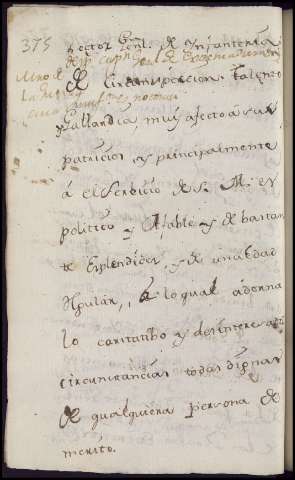 375
pector Genl. de Infanteria
de circunspeccion talento
y Gallardia, muy afecto a sus
patricios, y principalmente
á el Servicio de S. M. es
politico y Afable y de bastan
te Esplendidez, y de una edad
lo qual adorna
lo caritatibo y desinteresado
circunstancias todas dignas
de qualquiera persona de
merito.